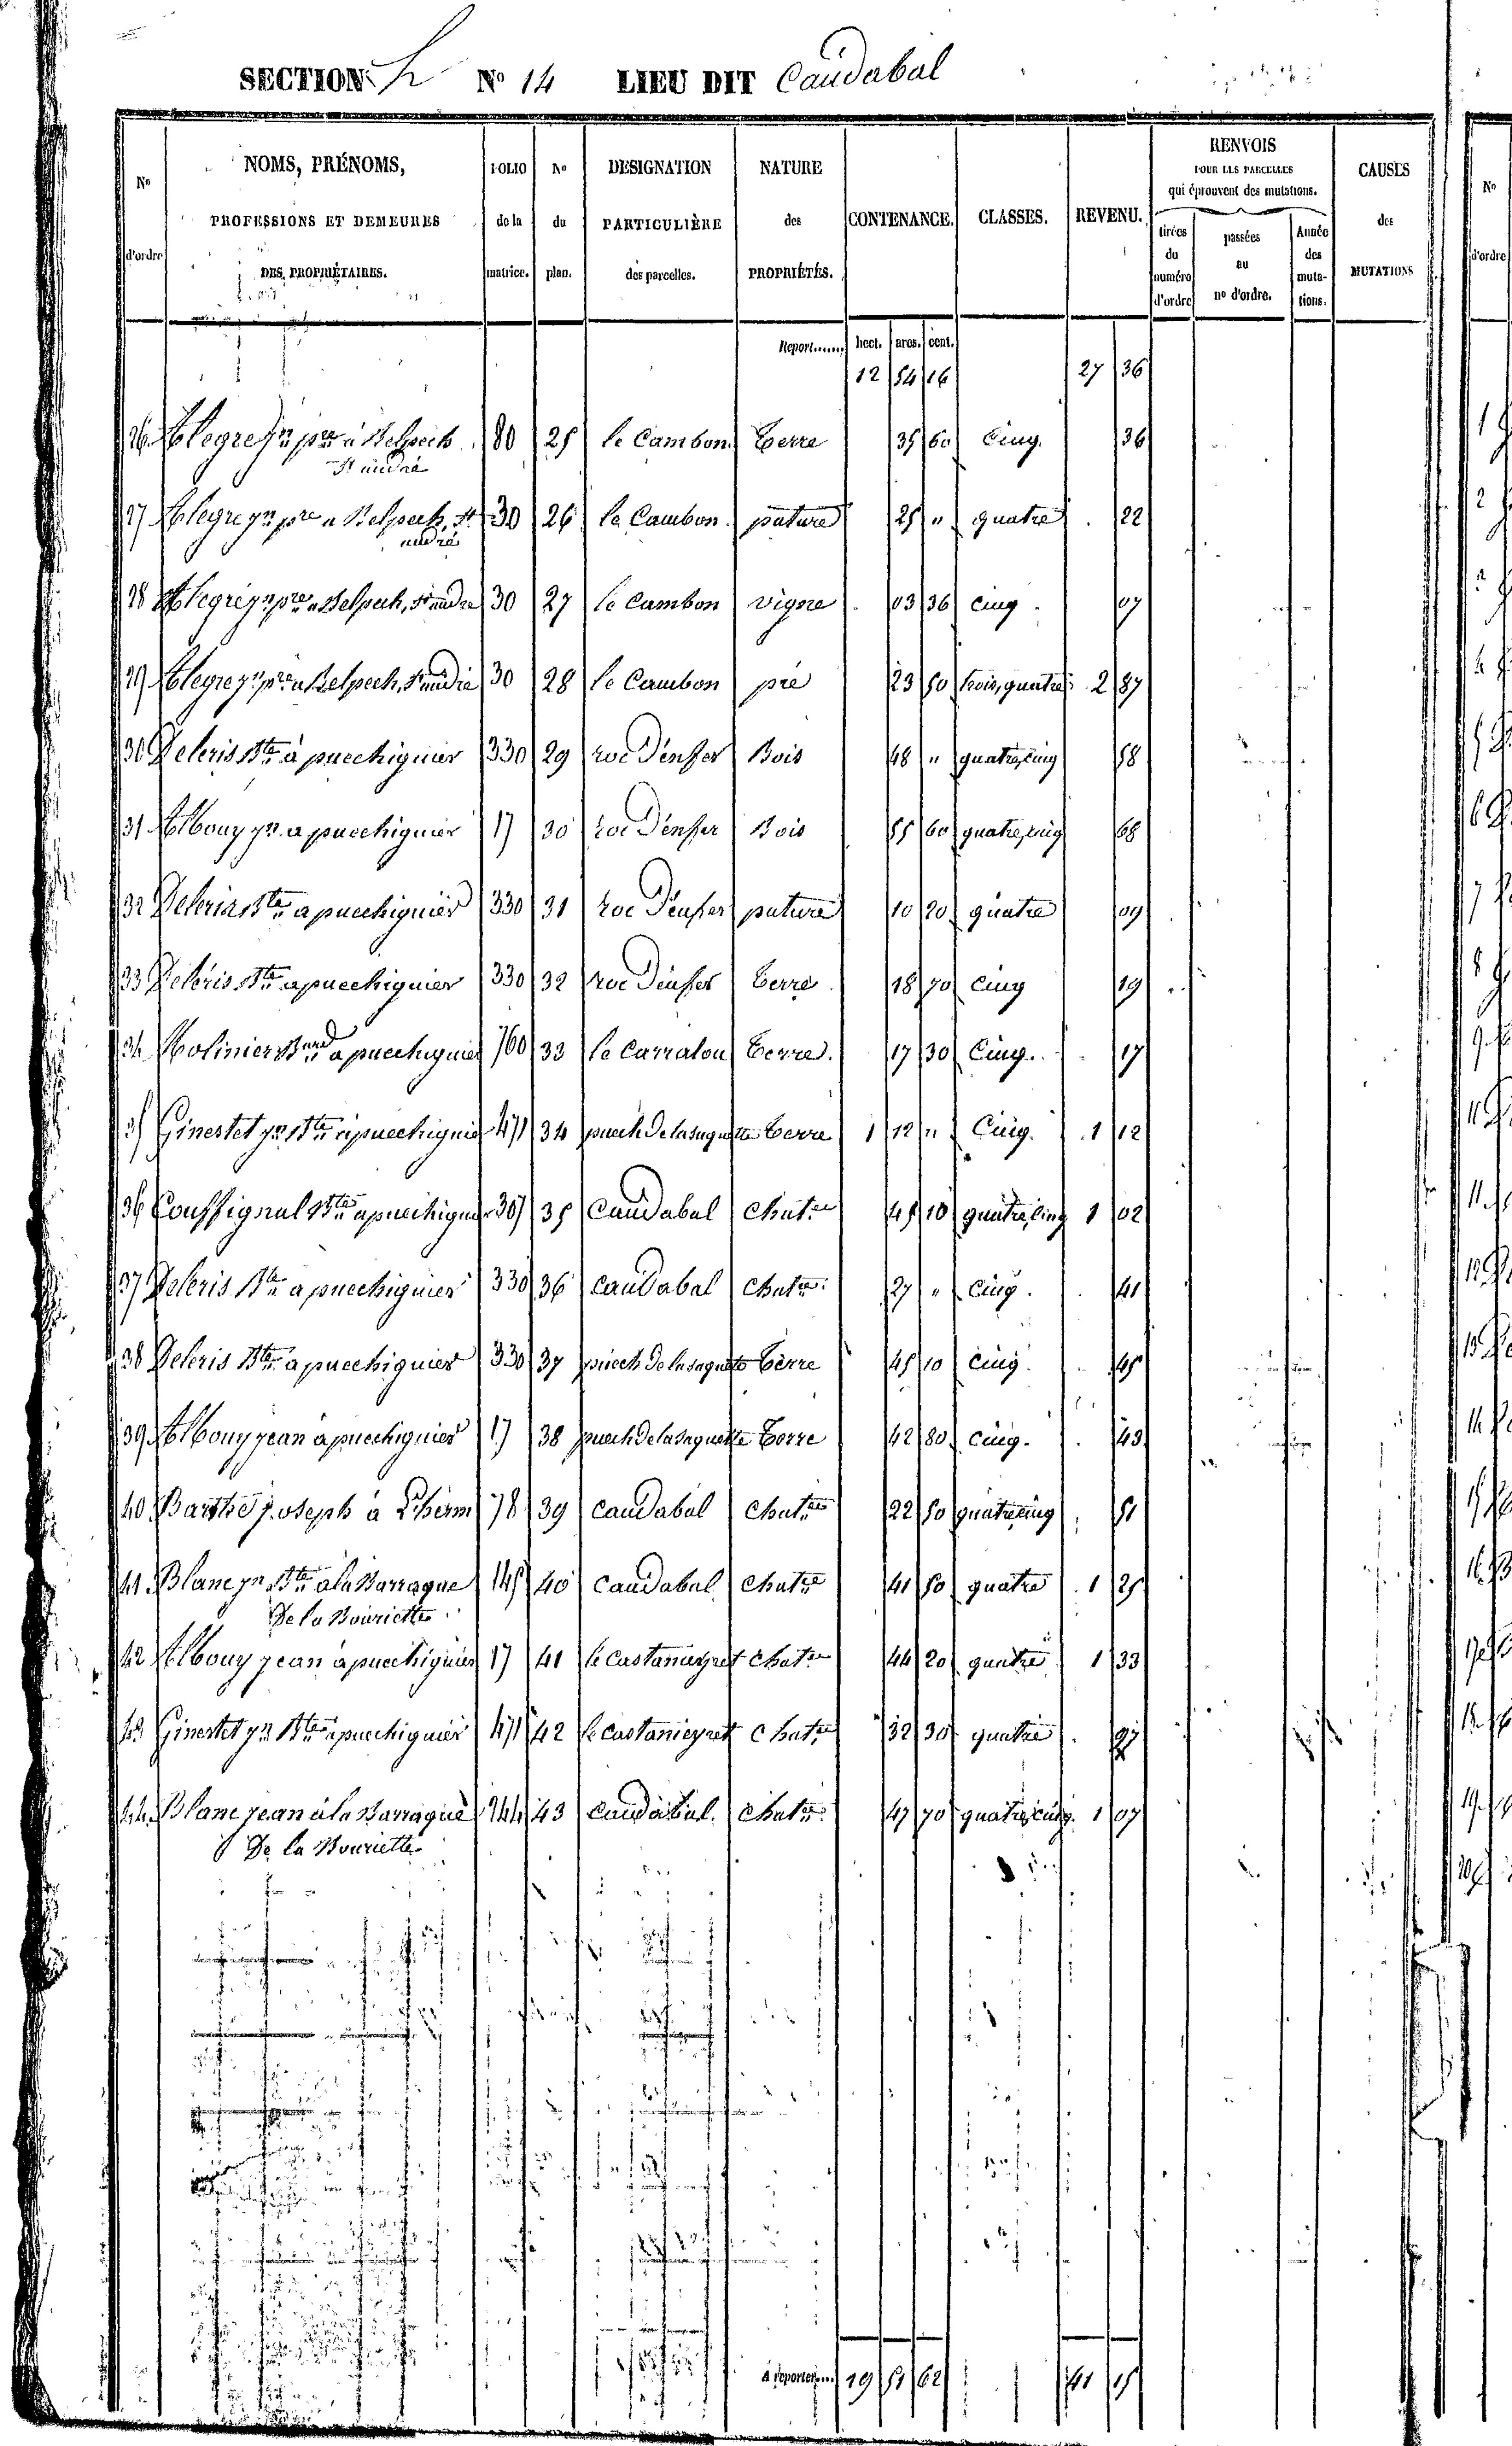 SECTION h N° 14 LIEU DIT Caudabal
N° d'ordre NOMS, PRÉNOMS, PROFESSIONS ET DEMEURES DES PROPRIÉTAIRES. FOLIO de la matrice. N° du plan. DESIGNATION PARTICULIÈRE des parcelles. NATURE des PROPRIÉTÉS. CONTENANCE. CLASSES. REVENU. RENVOIS POUR LES PARCELLES qui éprouvent des mutations. tirées du numéro d'ordre passées au n° d'ordre. Année des mutations. CAUSES des MUTATIONS
Report...... hect. ares. cent.
12 54 16 27 36
26 Alegre jn pre a Belpech 80 25 le Cambon terre 35 60 Cinq. 36
St andré
27 Alegre jn pre a Belpech, St 30 26 le Cambon pature 25 " quatre 22
andré
28 Alegre jn pre a Belpech, St andré 30 27 le Cambon vigne 03 36 cinq 07
29 Alegre jn pre a Belpech, St andré 30 28 le Cambon pré 23 50 trois, quatre 2 87
30 Deleris Bte à puechiguier 330 29 roc d'enfer Bois 48 " quatre, cinq 58
31 Albouy jn a puechiguier 17 30 roc d'enfer Bois 55 60 quatre, cinq 68
32 Deleris Bte a puechiguier 330 31 roc d'enfer pature 10 20 quatre 09
33 Deleris Bte a puechiguier 330 32 roc d'enfer terre 18 70 cinq 19
34 Molinier Bnd a puechiguier 760 33 le Carralou terre 17 30 Cinq. 17
35 Ginestet jn Bte a puechiguier 471 34 puech de la suquette terre 1 12 " Cinq. 1 12
36 Couffignal Bte a puechiguier 307 35 Caudabal Chatre 45 10 quatre, Cinq 1 02
37 Deleris Bte a puechiguier 330 36 Caudabal Chatre 27 " Cinq. 41
38 Deleris Bte a puechiguier 330 37 puech de la suquette terre 45 10 Cinq 45
39 Albouy jean a puechiguier 17 38 puech de la suquette terre 42 80 cinq. 43
40 Barthe joseph à Lherm 78 39 Caudabal Chatre 22 50 quatre, cinq 51
41 Blanc jn Bte à la Barraque 145 40 Caudabal Chatre 41 50 quatre 1 25
De la Bouriette
42 Albouy jean à puechiguier 17 41 le castanieyret Chatre 44 20 quatre 1 33
43 Ginestet jn Bte a puechiguier 471 42 le castanieyret Chatre 32 30 quatre 97
44 Blanc jean à la Barraque 144 43 Caudabal. Chatre 47 70 quatre, cinq. 1 07
De la Bouriette
A reporter.... 19 51 62 41 15